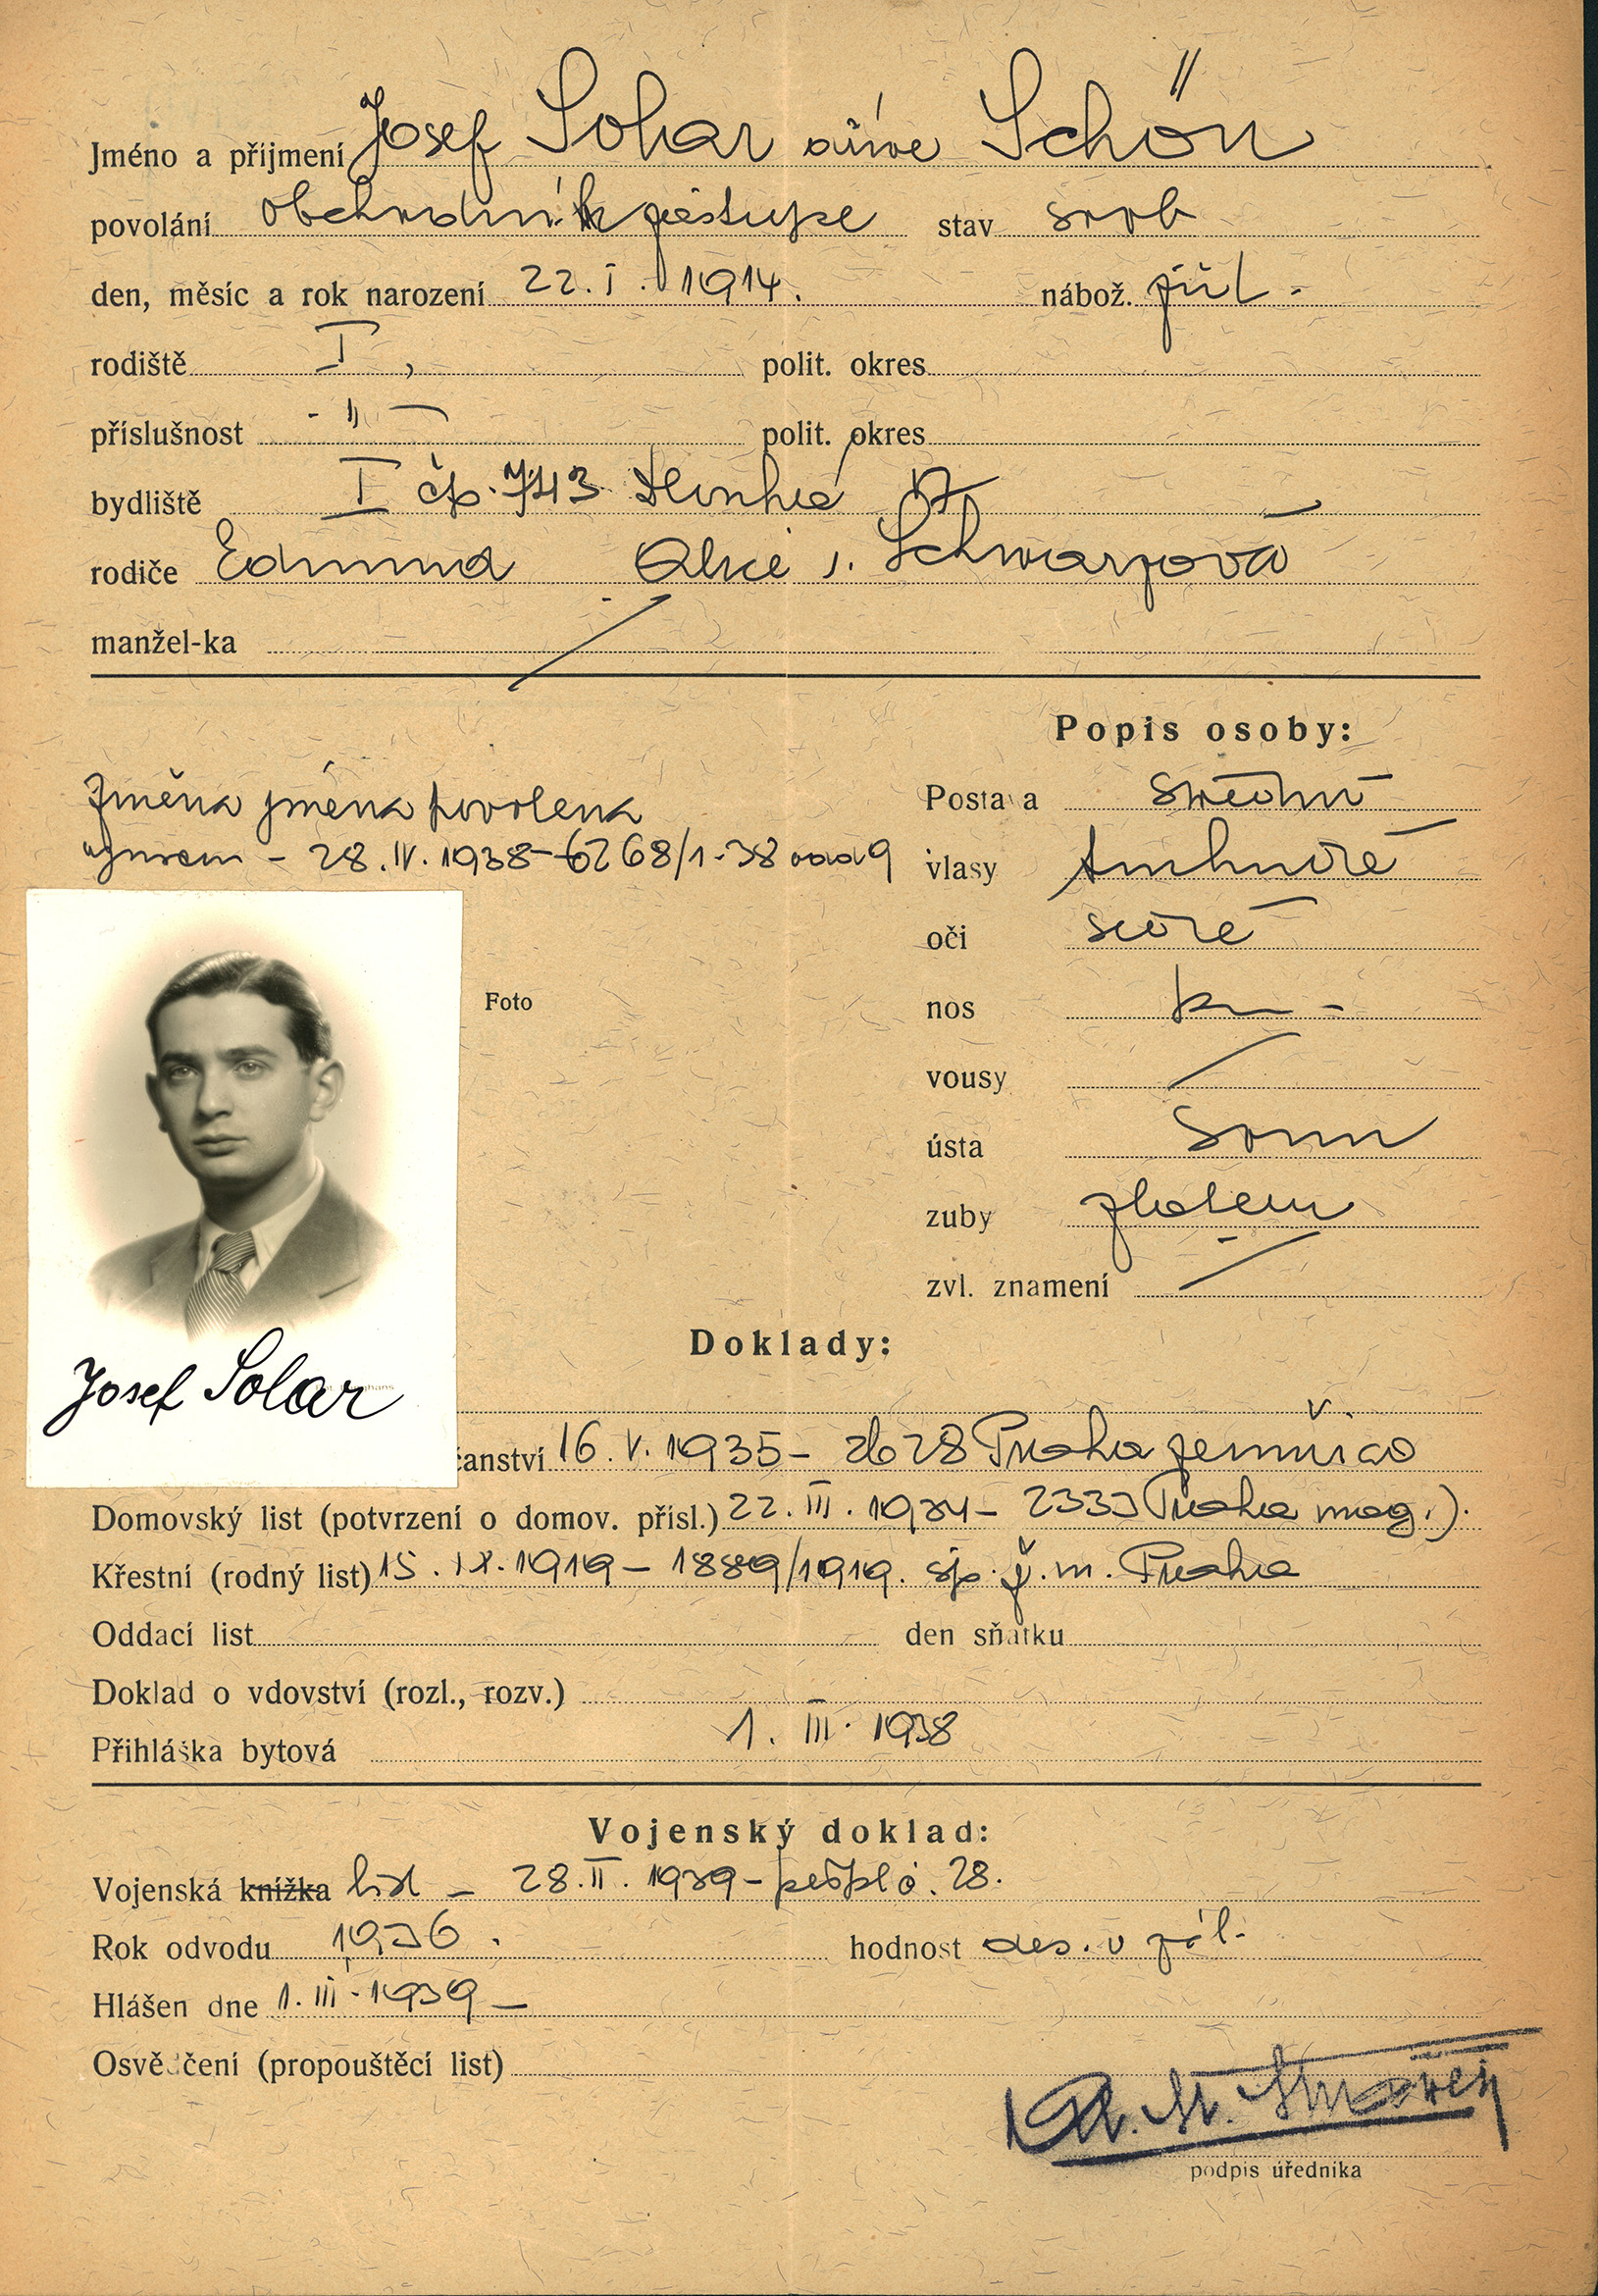 Jméno a příjmení Josef Solar dříve Schön
povolání obchodník příruč stav svob
den, měsíc a rok narození 22. I. 1914. nábož. žid.
rodiště I, polit. okres
příslušnost - " - polit. okres
bydliště I čp. 743 Dlouhá 17
rodiče Edmund Alice r. Schwarzová
manžel-ka
Popis osoby:
Změna jména povolena
výnosem - 28. IV. 1938 - 6268/1-38 odd 9
Postava střední
vlasy tmhnědé
oči šedé
nos
vousy
ústa soum
zuby zlatem
zvl. znamení
Foto
Josef Solar
Doklady:
čanství 16. V. 1935 - 2628 Praha zemúřad
Domovský list (potvrzení o domov. přísl.) 22. III. 1934 - 2333 Praha mag.).
Křestní (rodný list) 15. IX. 1919 - 1889/1919. ž. m. Praha
Oddací list den sňatku
Doklad o vdovství (rozl., rozv.)
Přihláška bytová 1. III. 1938
Vojenský doklad:
Vojenská knížka list - 28. II. 1939 - pěšpl č. 28.
Rok odvodu 1936. hodnost des. v zál.
Hlášen dne 1. III. 1939 -
Osvědčení (propouštěcí list)
podpis úředníka